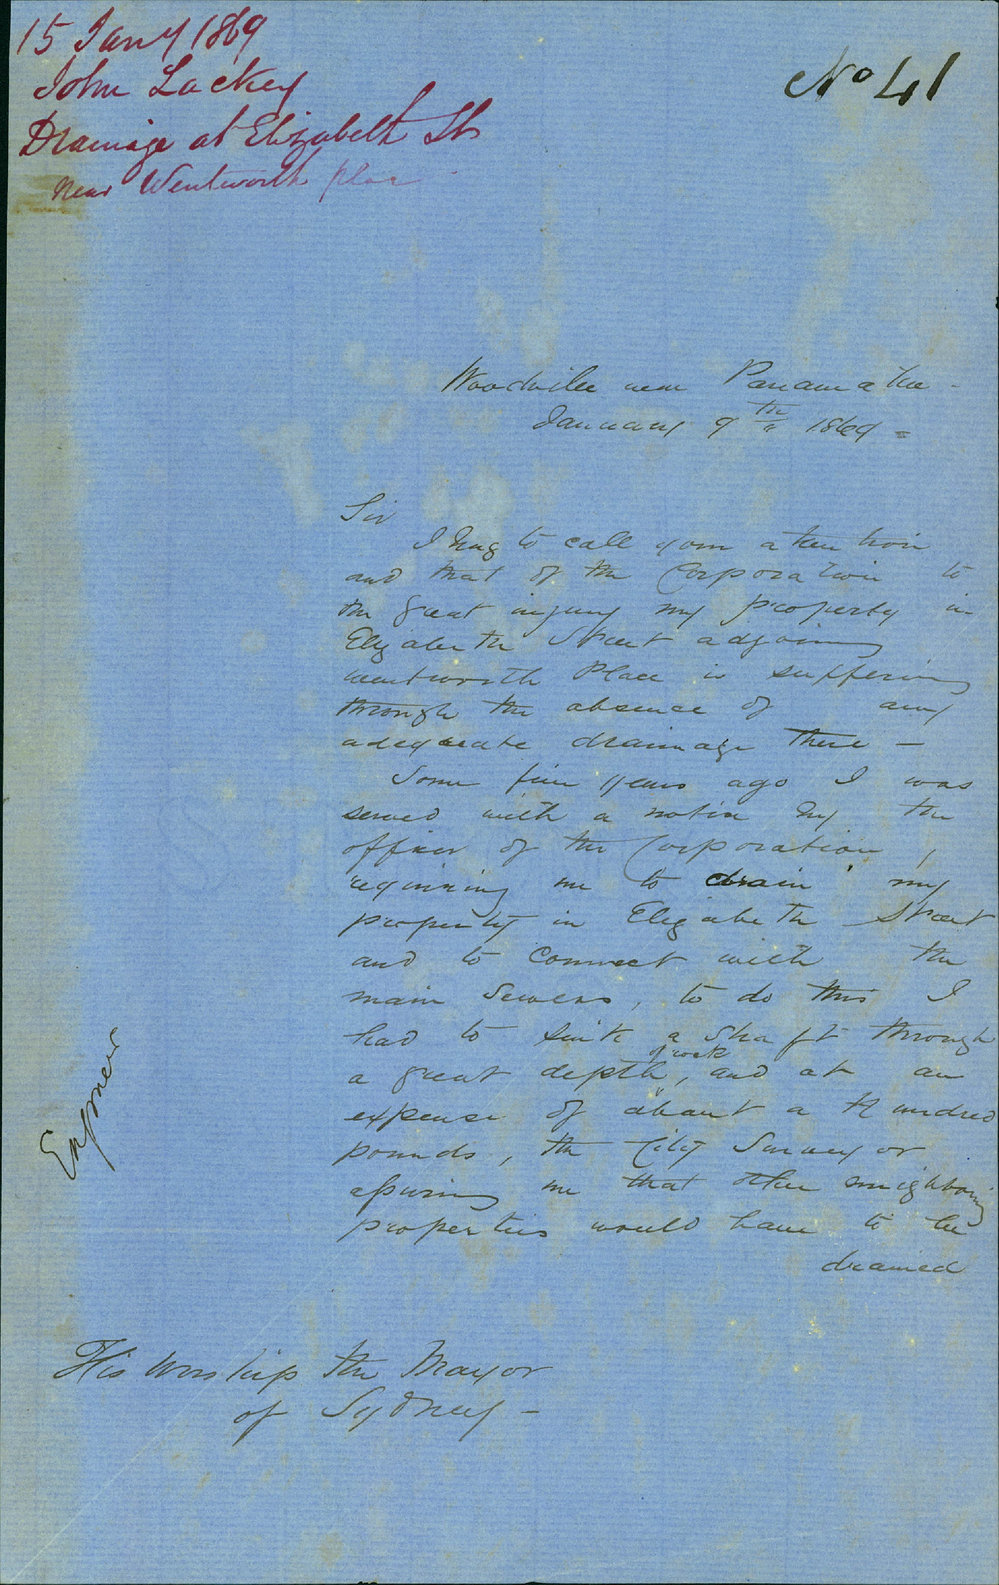 15 Jany 1869
John Lackey
Drainage at Elizabeth St
near Wentworth place
No 41
Woodville near Parramatta -
January 9th 1869 =
Sir
I beg to call your attention
and that of the Corporation to
the great injury my property in
Elizabeth Street adjoining
Wentworth Place is suffering
through the absence of any
adequate drainage there -
Some five years ago I was
served with a notice by the
officer of the Corporation,
requiring me to drain my
property in Elizabeth Street
and to connect with the
main sewers, to do this I
had to sink a shaft through
a great depth of rock, and at an
expense of about a Hundred
pounds, the City Surveyor
assuring me that other neighboring
properties would have to be
drained
Engineer
His Worship the Mayor
of Sydney -